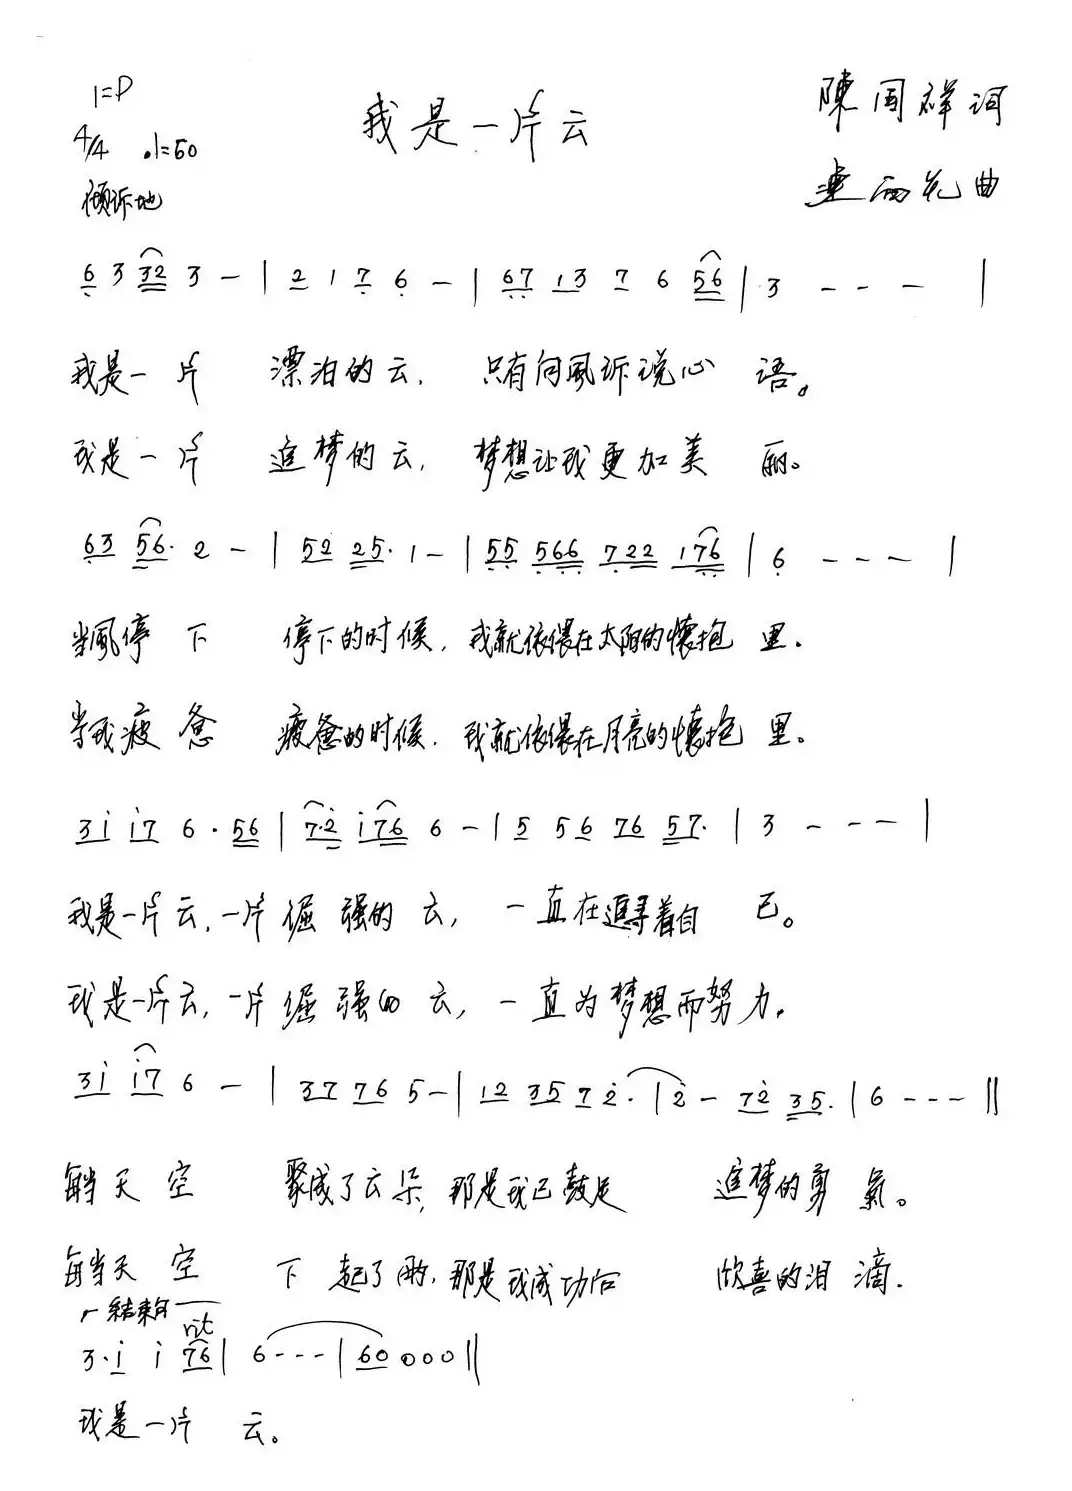 1=D
我是一片云
陳国祥词
4/4 ♩=50
雨花曲
倾诉地
6 3 32 3 - | 2 1 7 6 - | 67 13 7 6 56 | 3 - - - |
我是一片 漂泊的云, 只有向風诉说心 语。
我是一片 追梦的云, 梦想让我更加美 丽。
63 56· 2 - | 52 25· 1 - | 55 566 722 176 | 6 - - - |
当風停 下 停下的时候, 我就依偎在太阳的懷抱 里.
当我疲 惫 疲惫的时候. 我就依偎在月亮的懷抱 里。
3i i7 6 · 56 | 7·2 i76 6 - | 5 56 76 57· | 3 - - - |
我是一片云, 一片 倔 强的 云, 一直在追寻着自 己。
我是一片云, 一片 倔 强的 云, 一直为梦想而努力.
3i i7 6 - | 37 76 5 - | 12 35 7 2· | 2 - 72 35· | 6 - - - ‖
每当天 空 聚成了云朵, 那是我已鼓足 追梦的勇 氣。
每当天 空 下 起了雨, 那是我成功后 欣喜的泪 滴.
结束句 rit
3·i i 76 | 6 - - - | 60 0 0 0 ‖
我是一片 云。